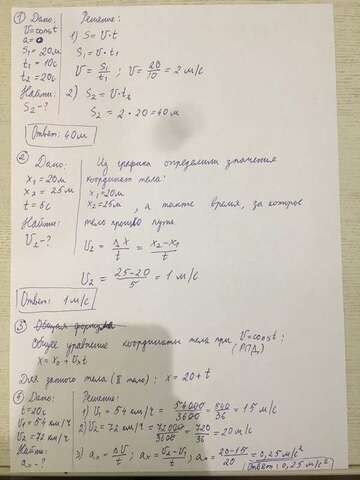 ① Дано:
V=const
a=0
S₁=20м
t₁=10с
t₂=20с
Найти:
S₂-?
Решение:
1) S=V·t
S₁=V·t₁
V=S₁/t₁; V=20/10=2 м/с
2) S₂=V·t₂
S₂=2·20=40м
Ответ: 40м
② Дано:
x₁=20м
x₂=25м
t=5с
Найти:
V₂-?
Из графика определили значения
координат тела:
x₁=20м
x₂=25м, а также время, за которое
тело прошло путь.
V₂=Δx/t=x₂-x₁/t
V₂=25-20/5=1 м/с
Ответ: 1 м/с
③ Общая формула
Общее уравнение координаты тела при V=const:
(РПД)
x=x₀+vₓt
Для затого тела (II тело): x=20+t
④ Дано:
t=20с
V₁=54 км/ч
V₂=72 км/ч
Найти:
aₓ-?
Решение:
1) V₁=54 км/ч=54000/3600=540/36=15 м/с
2) V₂=72 км/ч=72000/3600=720/36=20 м/с
3) aₓ=ΔV/t; aₓ=V₂-V₁/t; aₓ=20-15/20=0,25 м/с²
Ответ: 0,25 м/с²